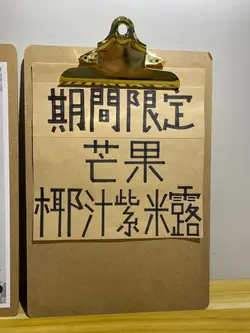 期間限定
芒果
椰汁紫米露